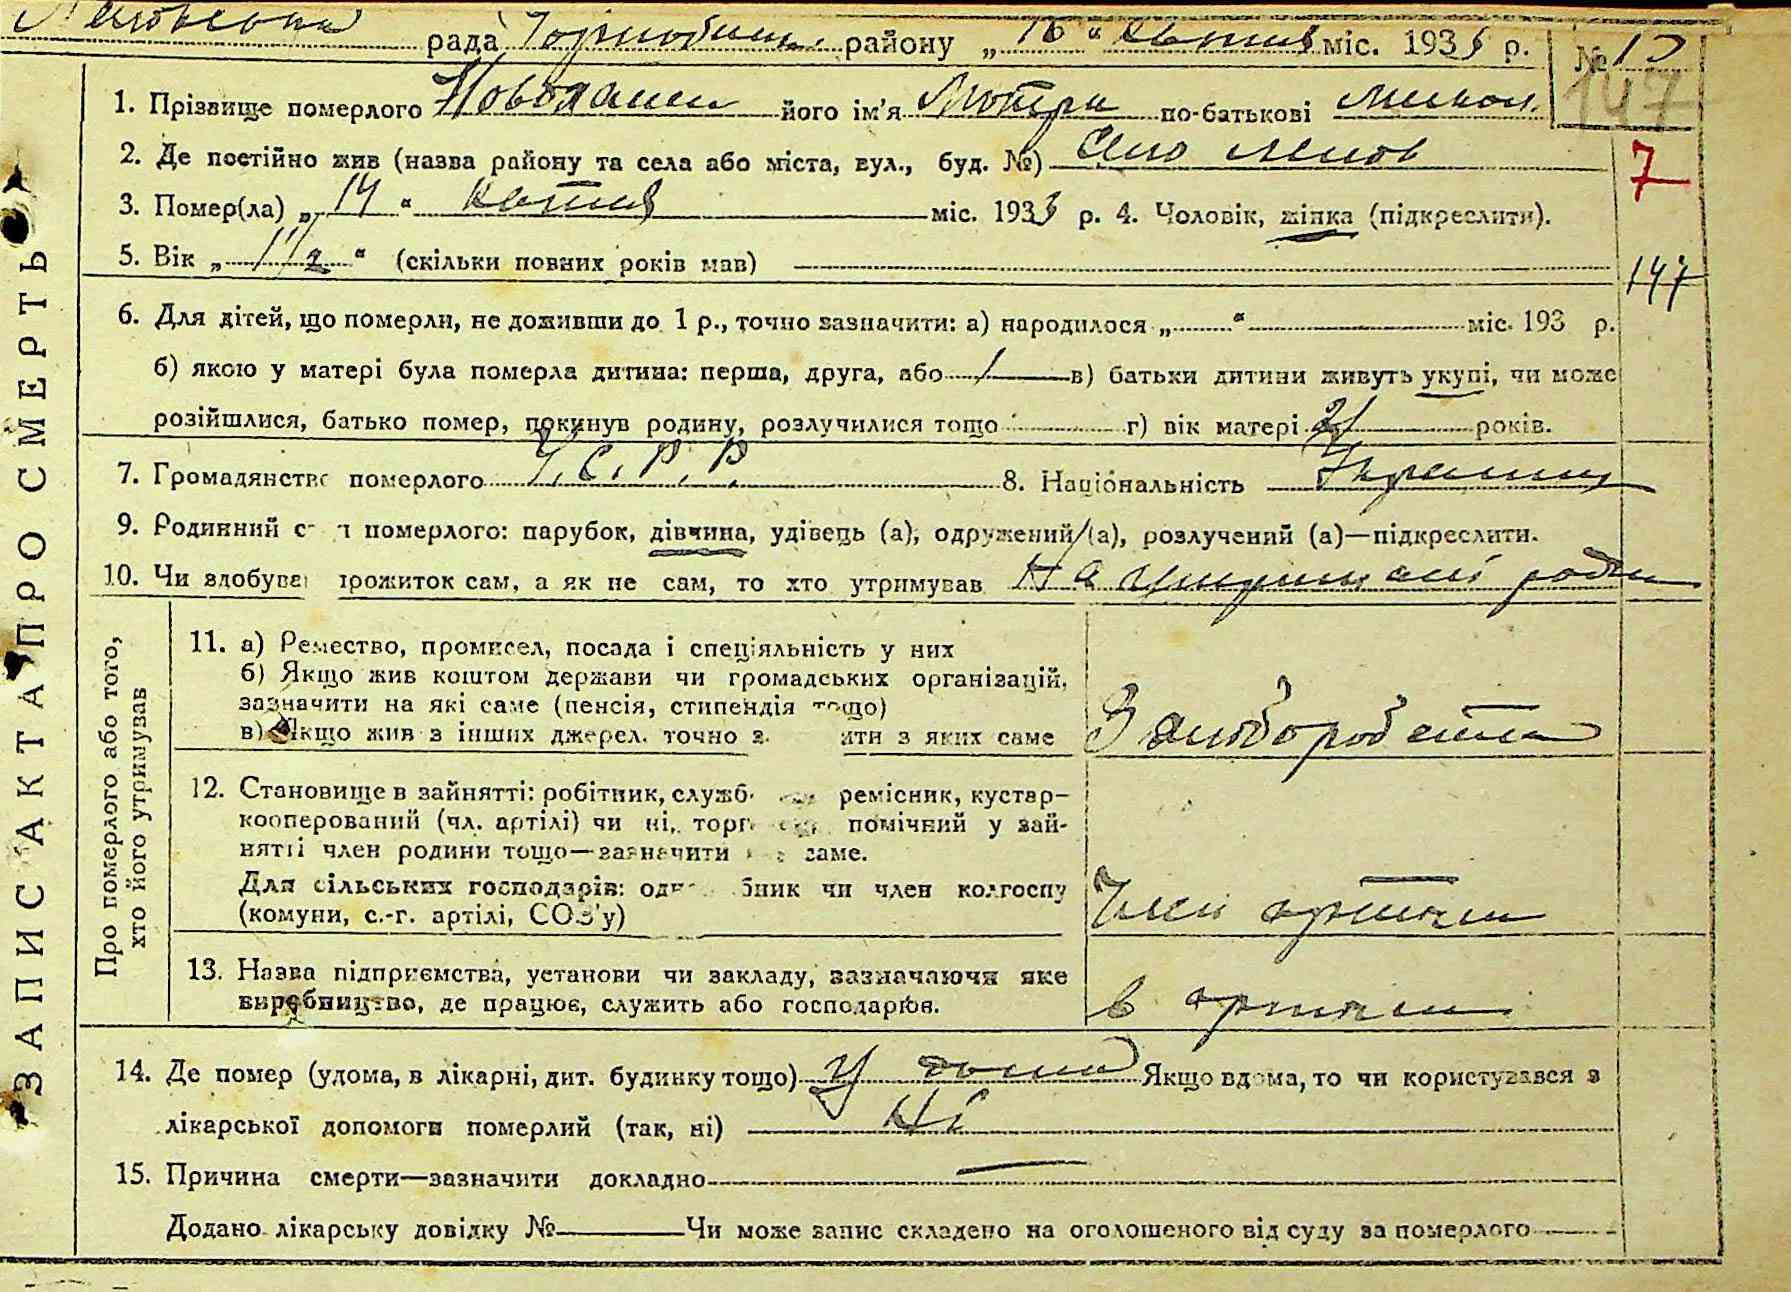 рада району „16“ квітня міс. 1933 р. № 10
147
1. Прізвище померлого його ім'я Мотря по-батькові Микол.
2. Де постійно жив (назва району та села або міста, вул., буд. №) Село
7
3. Помер(ла) „14“ квітня міс. 1933 р. 4. Чоловік, жінка (підкреслити).
5. Вік „1 1/2“ (скільки повних років мав)
147
6. Для дітей, що померли, не доживши до 1 р., точно зазначити: а) народилося „ “ міс. 193 р.
б) якою у матері була померла дитина: перша, друга, або 1 в) батьки дитини живуть укупі, чи може
розійшлися, батько помер, покинув родину, розлучилися тощо г) вік матері 21 років.
7. Громадянство померлого У.С.Р.Р. 8. Національність
9. Родинний с н померлого: парубок, дівчина, удівець (а), одружений (а), розлучений (а)—підкреслити.
10. Чи здобував прожиток сам, а як не сам, то хто утримував На утриманні родин
ЗАПИС АКТА ПРО СМЕРТЬ
Про померлого або того,
хто його утримував
11. а) Ремество, промисел, посада і спеціяльність у них
б) Якщо жив коштом держави чи громадських організацій,
зазначити на які саме (пенсія, стипендія тощо)
в) Якщо жив з інших джерел. точно з ити з яких саме
Хлібороб
12. Становище в зайнятті: робітник, служб ремісник, кустар-
кооперований (чл. артілі) чи ні, торг помічний у зай-
нятті член родини тощо—зазначити саме.
Для сільських господарів: одн бник чи член колгоспу
(комуни, с.-г. артілі, СОЗ'у)
Член артіли
13. Назва підприємства, установи чи закладу, зазначаючи яке
виробництво, де працює, служить або господарює.
в артіли
14. Де помер (удома, в лікарні, дит. будинку тощо) У дома Якщо вдома, то чи користувався з
лікарської допомоги померлий (так, ні) Ні
15. Причина смерти—зазначити докладно —
Додано лікарську довідку № Чи може запис складено на оголошеного від суду за померлого